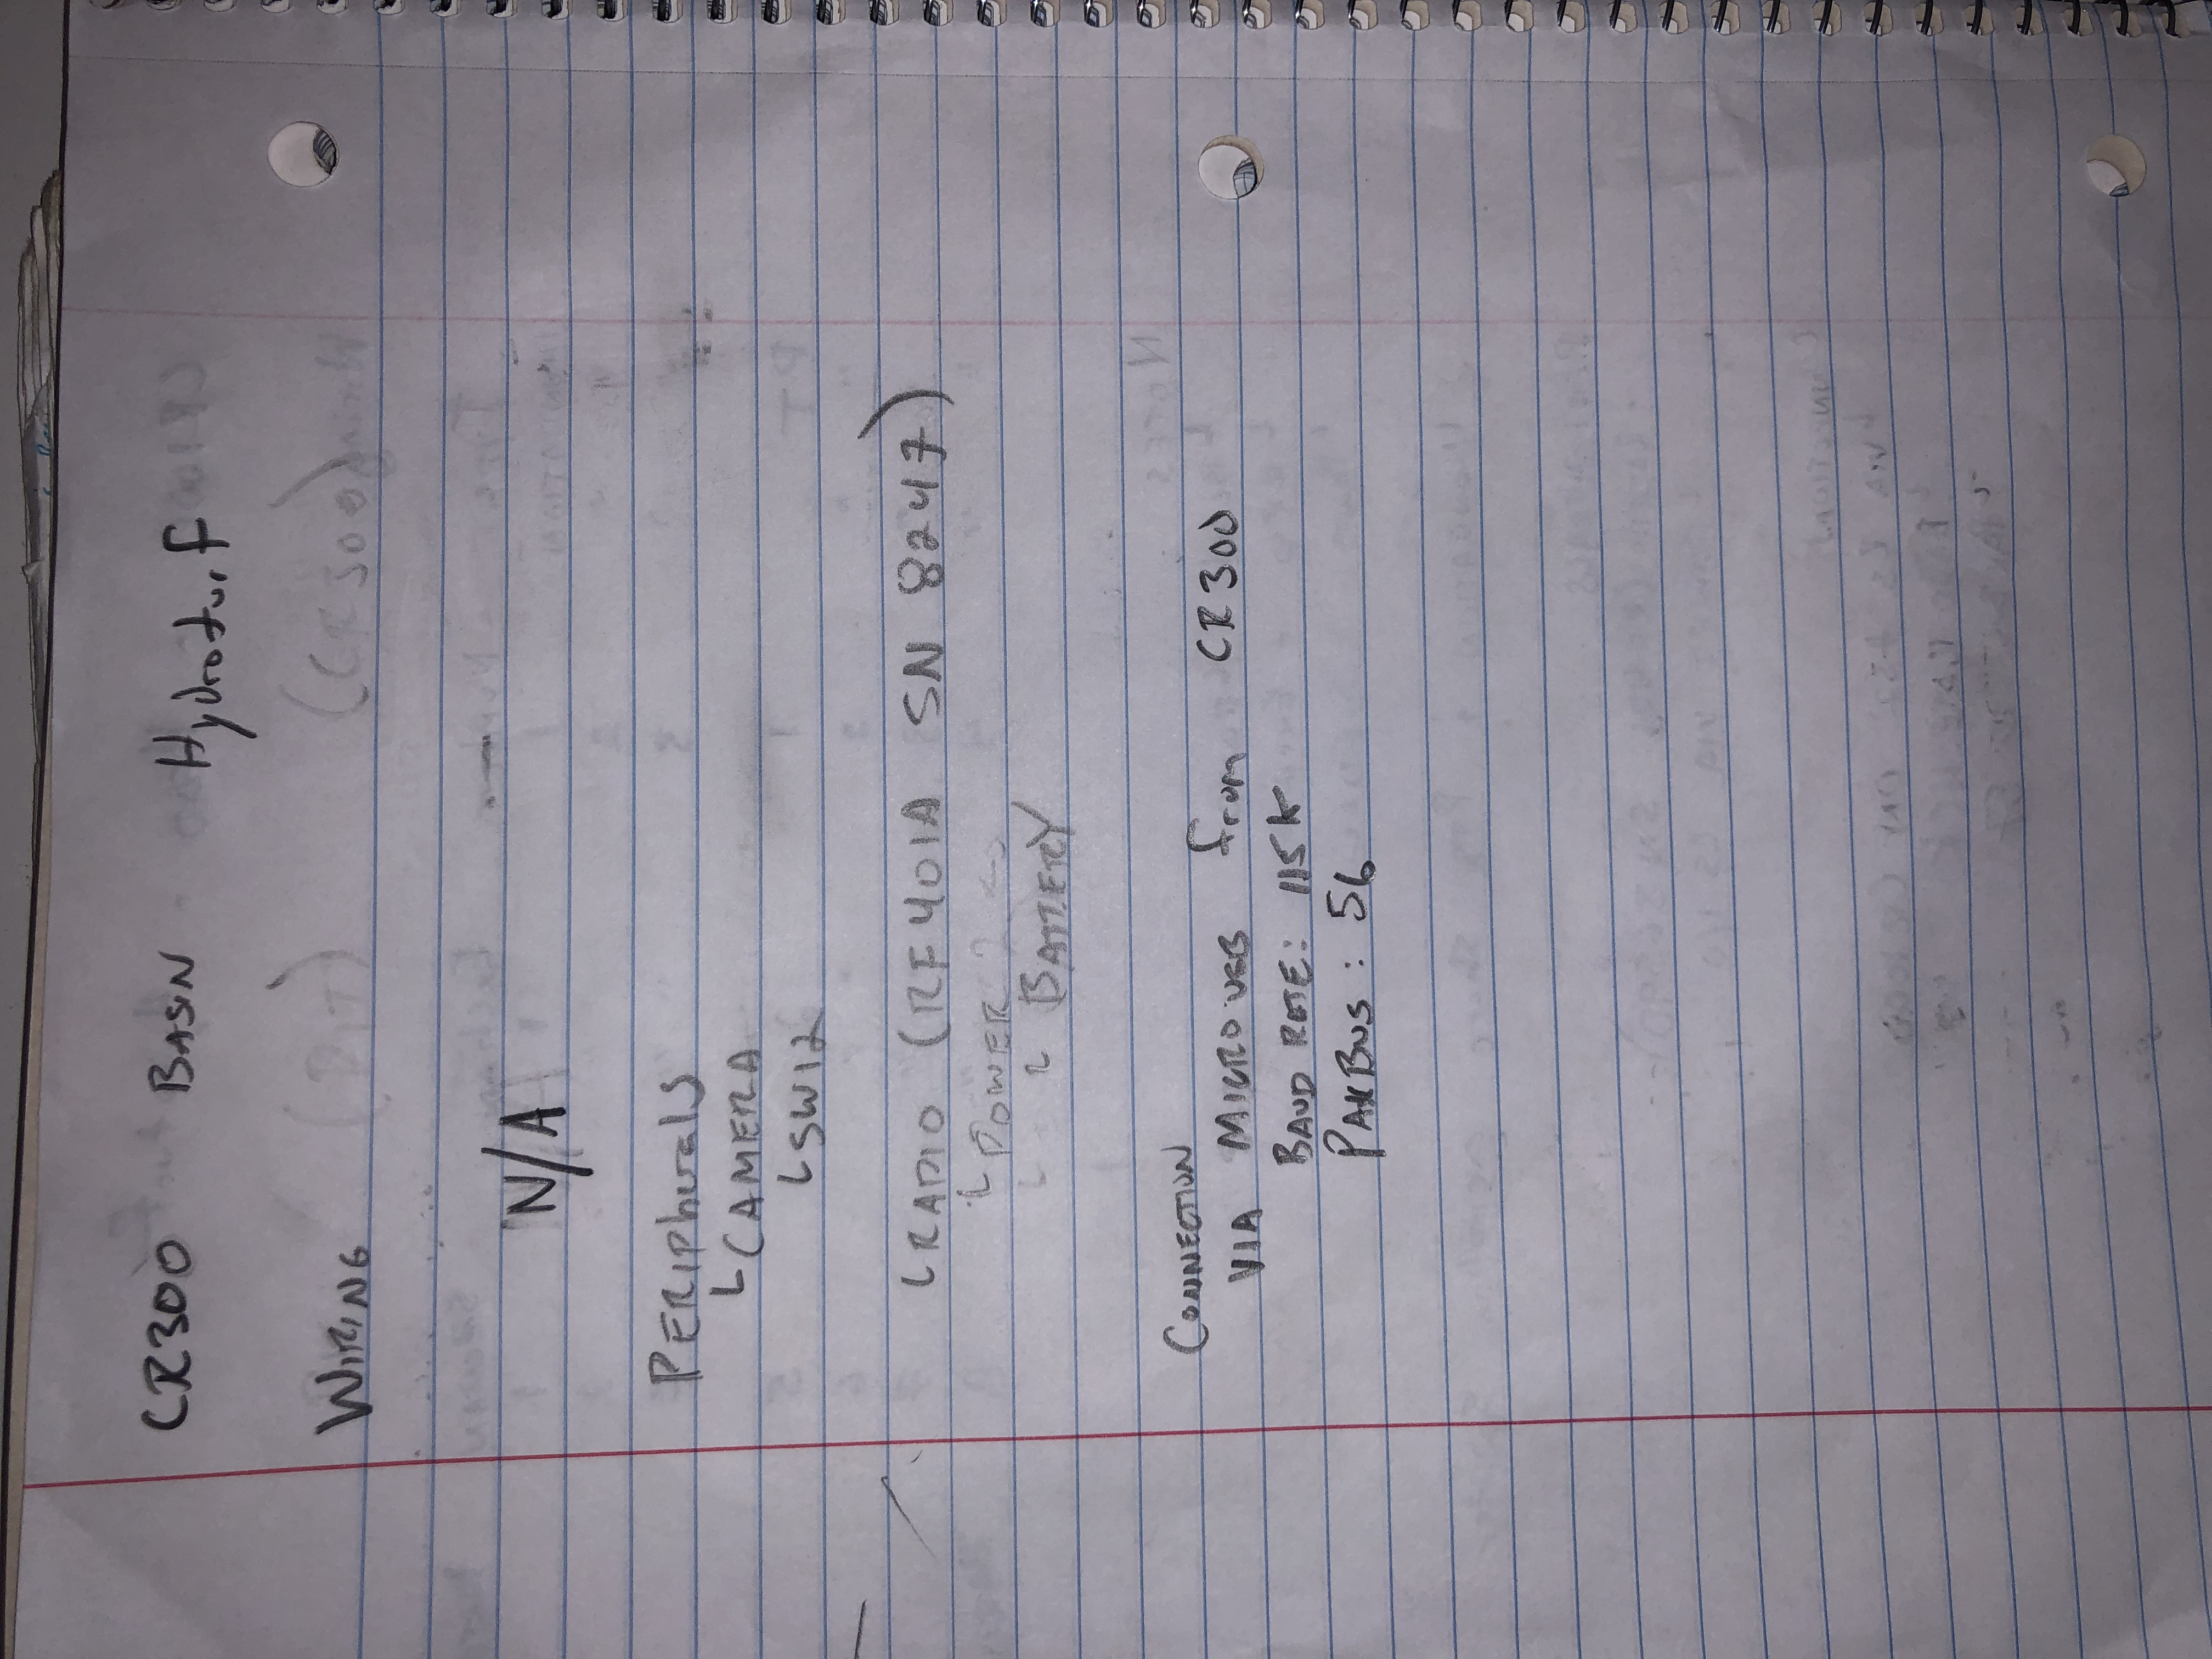 CR300 BASIN Hydroturf
WIRING
N/A
PERIPherals
└ CAMERA
└ SW12
└ RADIO (RF401A SN 8247)
└ POWER
└ BATTERY
CONNECTION
VIA MICRO USB from CR300
BAUD RATE: 115K
PAKBUS: 56